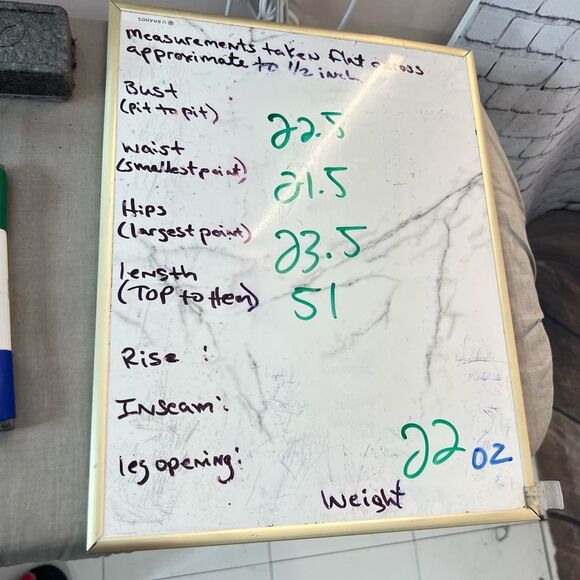 U BRANDS
measurements taken flat across
approximate to 1/2 inch
Bust
(pit to pit)
22.5
waist
(smallest point)
21.5
Hips
(largest point)
23.5
length
(TOP to Hem)
51
Rise :
Inseam:
leg opening:
22 oz
Weight